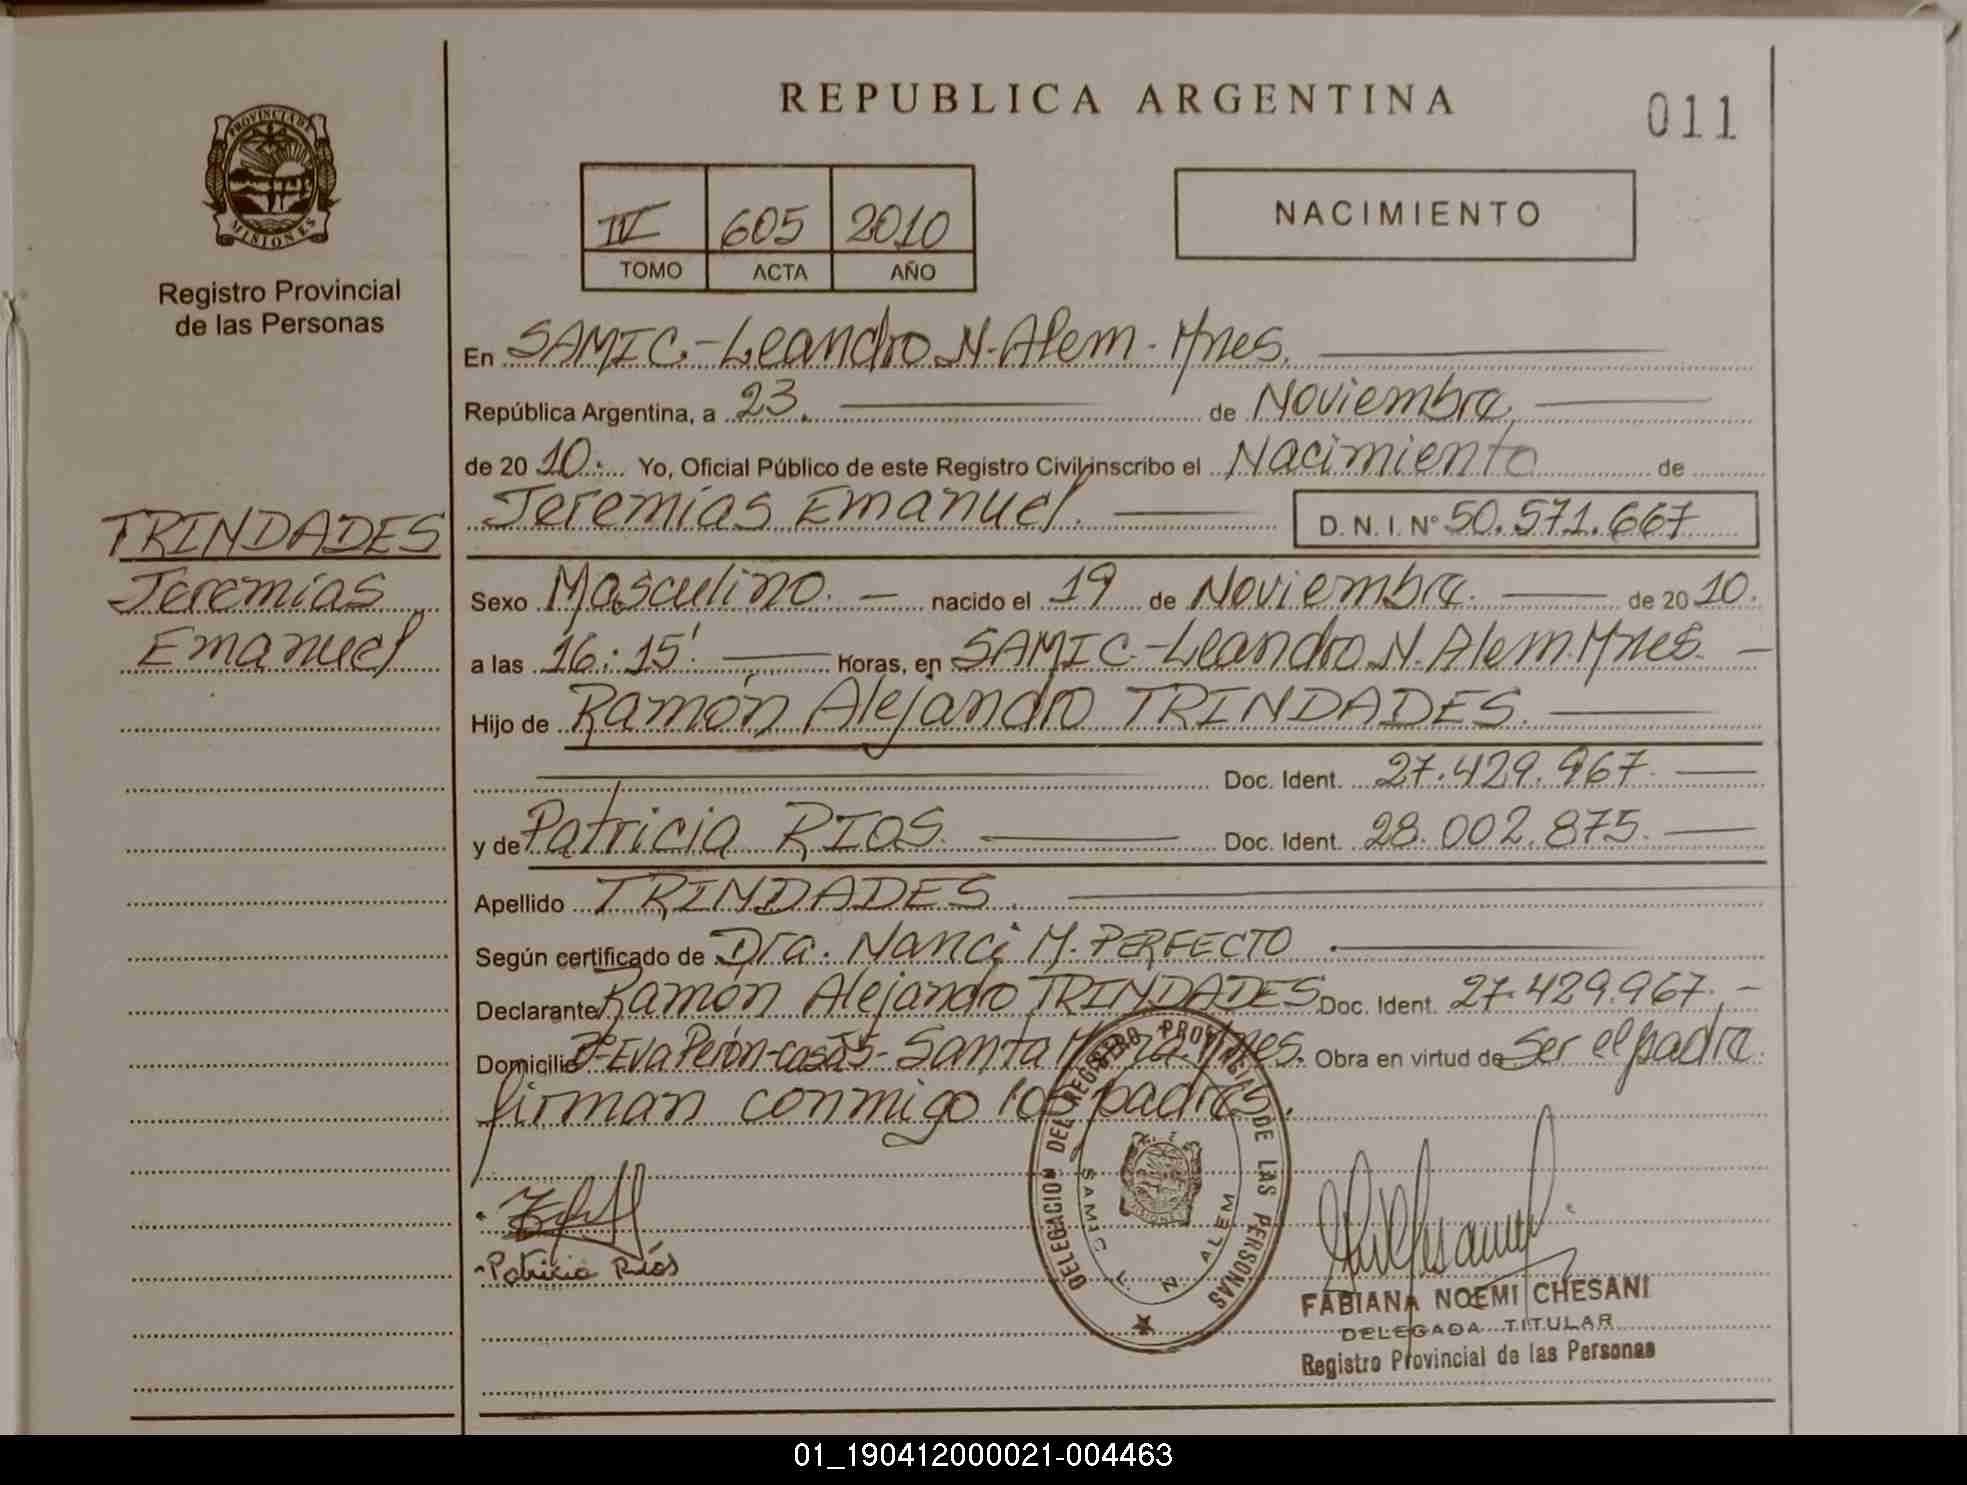 REPUBLICA ARGENTINA
011
PROVINCIA DE MISIONES
Registro Provincial
de las Personas
IV 605 2010
TOMO ACTA AÑO
NACIMIENTO
En SAMIC.-Leandro N. Alem - Mnes.
República Argentina, a 23. de Noviembre
de 20 10. Yo, Oficial Público de este Registro Civil inscribo el Nacimiento de
Jeremías Emanuel. D. N. I. N° 50.571.667
TRINDADES
Jeremías
Emanuel
Sexo Masculino. nacido el 19 de Noviembre. de 20 10.
a las 16:15' Horas, en SAMIC.-Leandro N. Alem. Mnes.
Hijo de Ramón Alejandro TRINDADES.
Doc. Ident. 27.429.967.
y de Patricia RIOS. Doc. Ident. 28.002.875.
Apellido TRINDADES.
Según certificado de Dra. Nanci M. PERFECTO.
Declarante Ramón Alejandro TRINDADES Doc. Ident. 27.429.967.
Domicilio Bº Eva Perón-casas- Santa María. Mnes. Obra en virtud de Ser el padre.
firman conmigo los padres.
Patricia Ríos
DELEGACION DEL REGISTRO PROVINCIAL DE LAS PERSONAS
SAMIC L. N. ALEM
FABIANA NOEMI CHESANI
DELEGADA TITULAR
Registro Provincial de las Personas
01_190412000021-004463